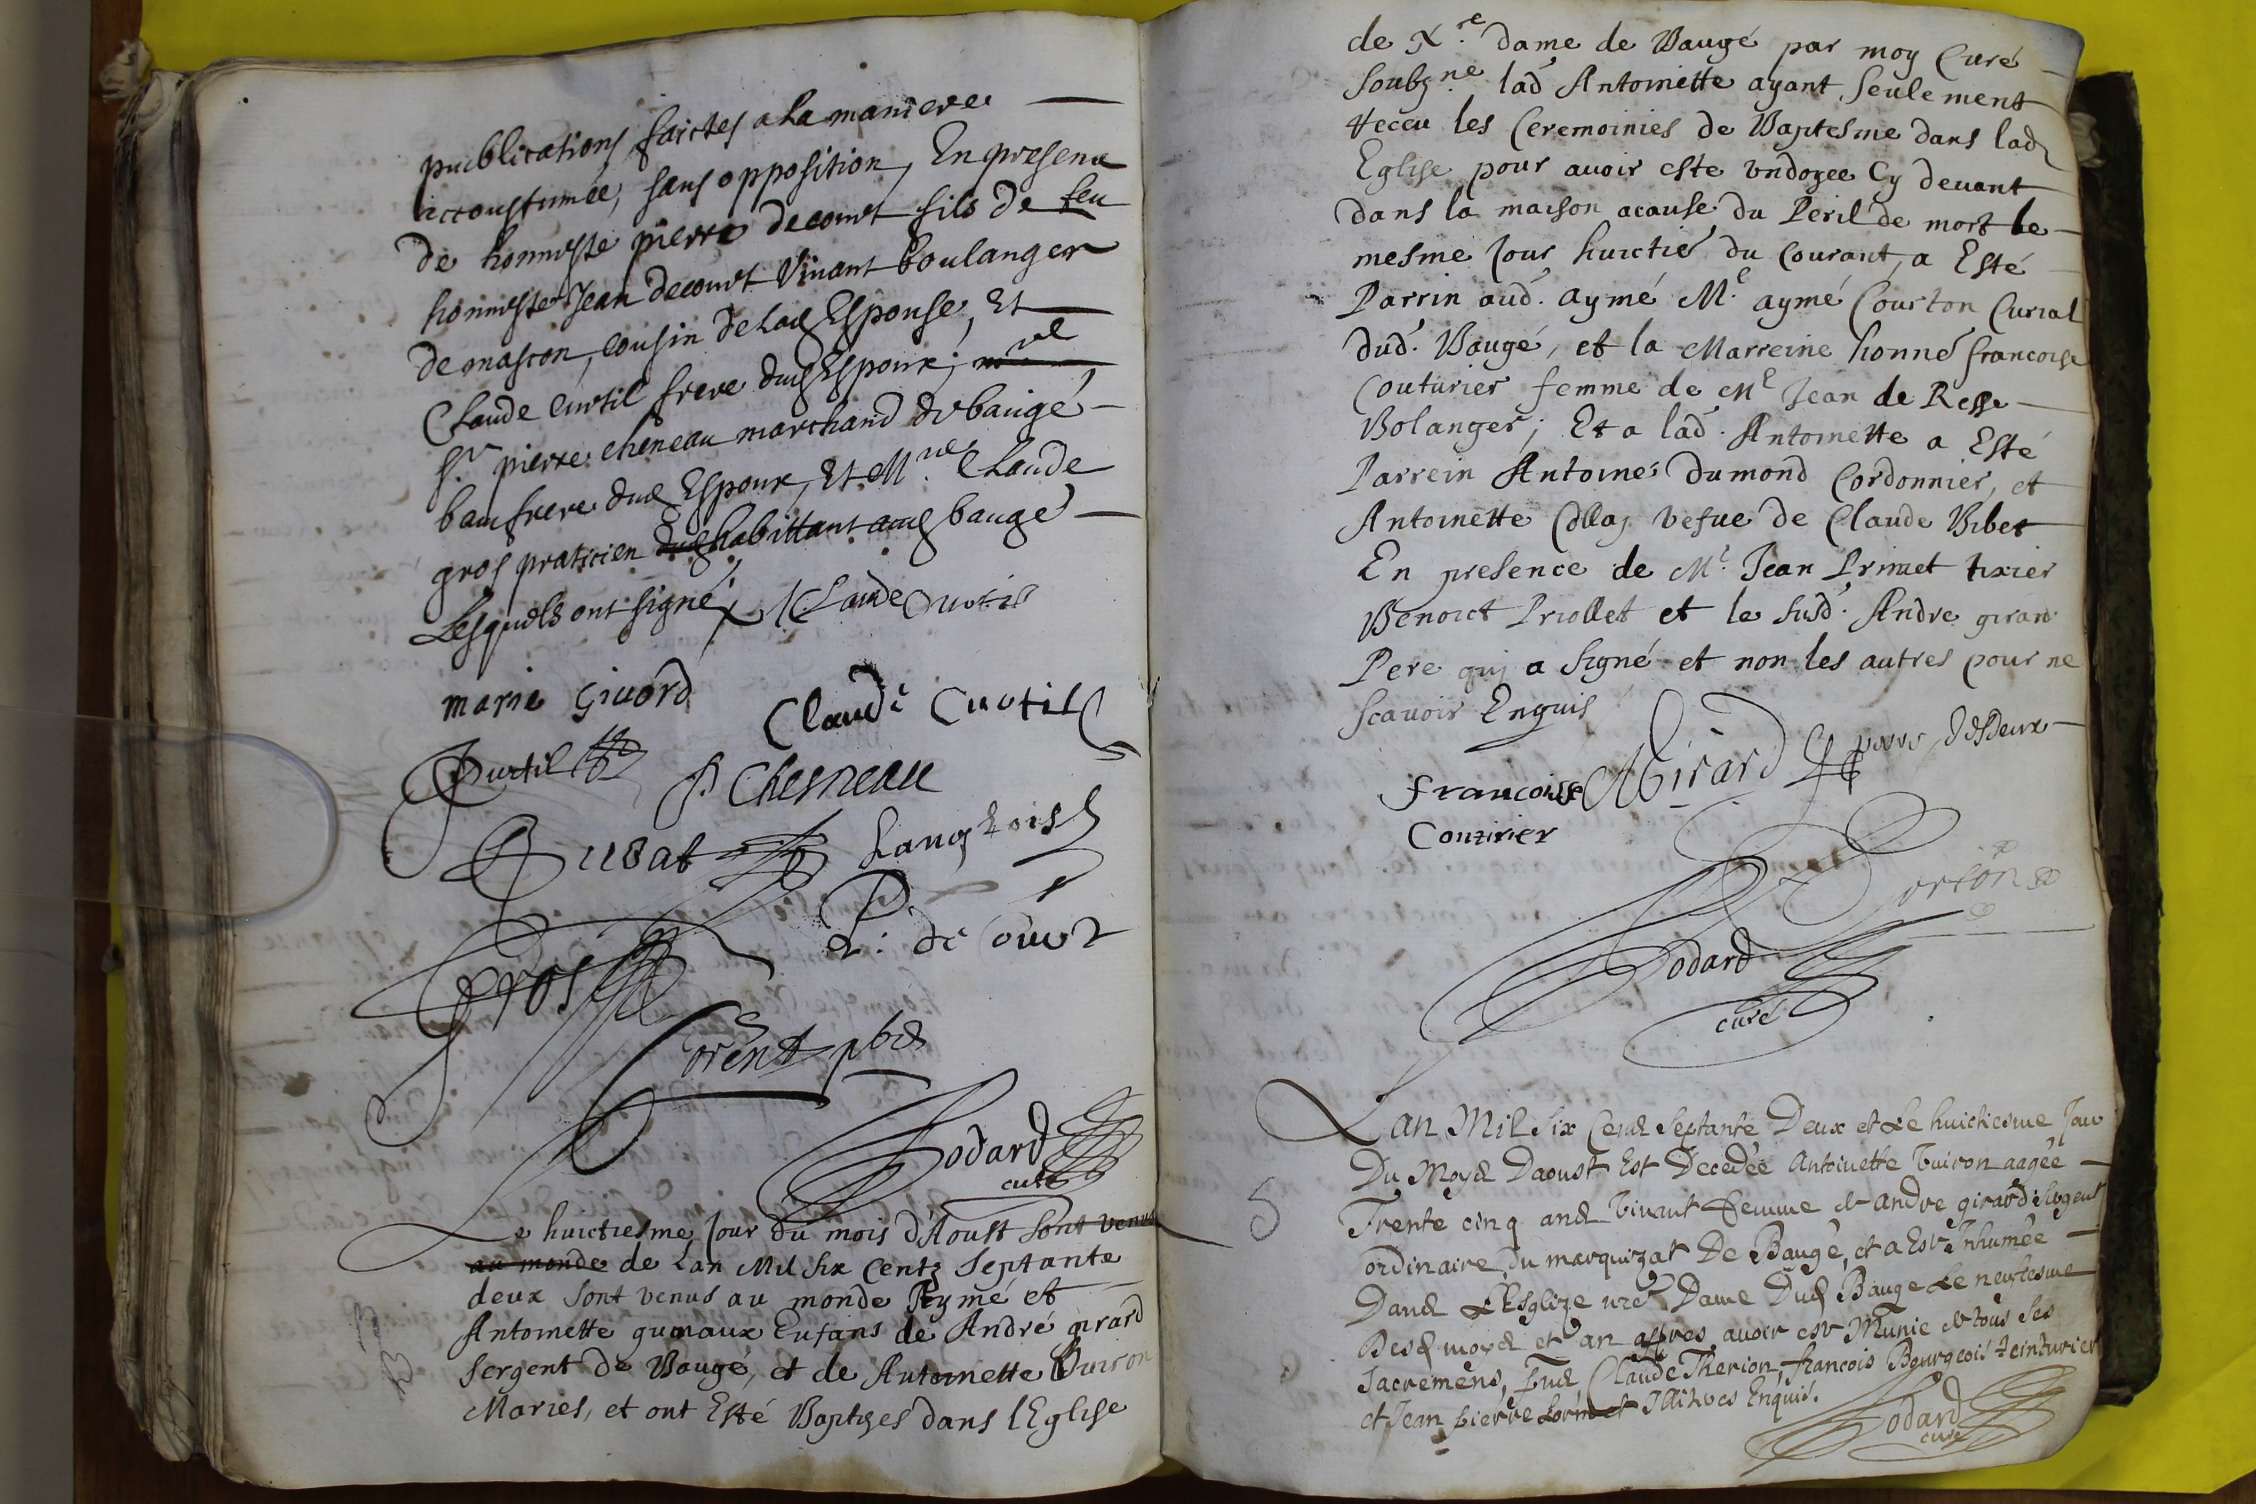 publications faictes a la maniere
accoustumée, sans opposition, En presence
de honneste pierre decourt fils de feu
honneste Jean decourt vivant boulanger
de mascon, cousin de lad Espouse, Et
Claude Curtil frere dud Espoux;
Sr. pierre cheneau marchand de baugé
beaufrere dud Espoux, Et Mre Claude
gros praticien dud habittant aud baugé
Lesquels ont signé Claude Curtil
marie Givord
Claude Curtil
Curtil
P. Chesneau
Langlois
P. de Court
Gros
Lorent pbr
Godard
curé
Le huictiesme jour du mois d'Aoust sont venus
au monde de Lan Mil six Centz septante
deux sont venus au monde Aymé et
Antoinette gumaux Enfans de André girard
sergent de Baugé, et de Antoinette Buiron
Maries, et ont Esté Baptizes dans l'Eglise
de Nre dame de Baugé par moy Curé
soubzne lad Antoinette ayant seulement
receu les Ceremoinies de Baptesme dans lad
Eglise pour avoir este undoyee Cy devant
dans la maison acause du Peril de mort le
mesme jour huictie du Courant, a Esté
Parrin aud. aymé Me aymé Courton Curial
dud. Baugé, et la Marreine honne francoise
Couturier femme de Me Jean de Resse
Bolanger; Et a lad. Antoinette a Esté
Parrein Antoine Dumond Cordonnier, et
Antoinette Collas vefue de Claude Bibet
En presence de Me Jean Primet tixier
Benoict Priollet et le susd. Andre girard
Pere qui a signé et non les autres pour ne
scavoir Enquis
Girard pere desdeux
francoise
Couturier
Corton
Godard
curé
Lan Mil six Cens septante Deux et Le huictiesme Jour
Du Moys Daoust Est Decedée Antoinette Buiron aagée
Trente cinq ans vivant femme de andre girard sergent
ordinaire du marquizat De Baugé, et a Esté Inhumée
Dans L'Esglize nre Dame Dud Baugé Le neufiesme
Desd moys et an appres avoir esté Munie de tous ses
sacremens, Pnts Claude Therion, francois Bourgeois teinturier
et Jean pierre Lorin et Illitres Enquis.
Godard
curé